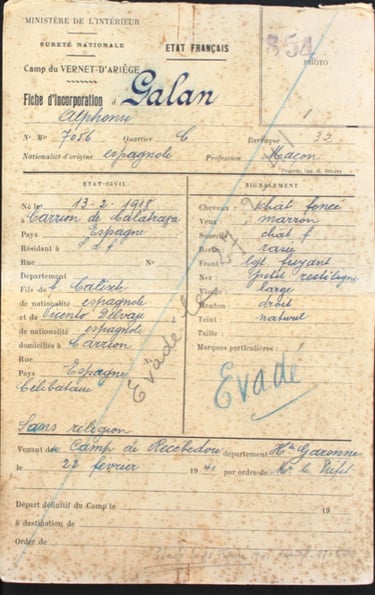 MINISTÈRE DE L'INTÉRIEUR
SURETÉ NATIONALE
ETAT FRANÇAIS
854
PHOTO
Camp du VERNET-D'ARIÈGE
Fiche d'Incorporation Galan
Alphonse
N° Mle 7086 Quartier C Baraque 32
Nationalité d'origine espagnole Profession Macon
ETAT-CIVIL
Né le 13-2-1918
à Carrion de Calatraga
Pays Espagne
Résidant à S.d.f
Rue N°
Département
Fils de f. Calixte
de nationalité espagnole
et de
de nationalité espagnole
domiciliés à Carrion
Rue
Pays Espagne
Célibataire
Sans réligion
SIGNALEMENT
Cheveux : chat foncé
Yeux : marron
Sourcils chat f
rasée
Front : lgt fuyant
Nez : petit rectiligne
Visage : large
Menton : droit
Teint : naturel
Taille :
Marques particulières :
Evadé le
Evadé
Venant de Camp de Recebedou département Hte Garonne
le 22 fevrier 1941 par ordre de Mr le Préfet
Départ définitif du Camp le 19
à destination de
Ordre de